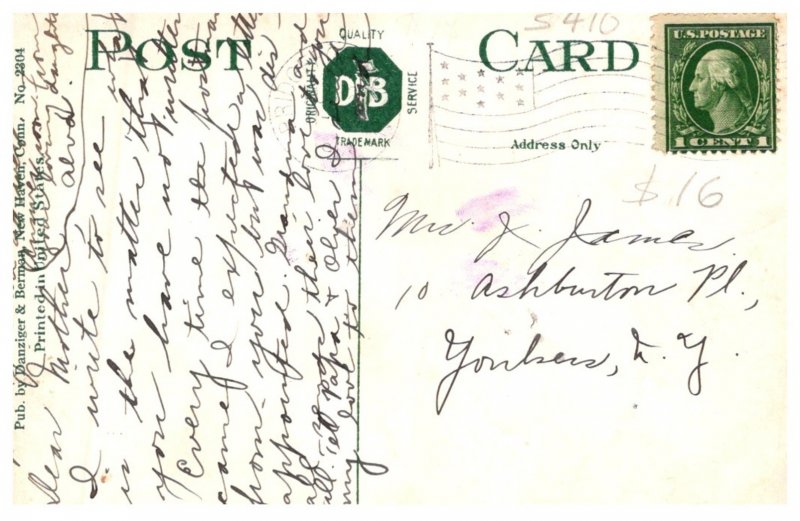 POST CARD
S410
QUALITY
ORIGINALITY
D&B
SERVICE
TRADEMARK
U.S. POSTAGE
1 CENT 1
Address Only
$.16
Mrs. J. James
10 Ashburton Pl.,
Yonkers, N. Y.
Pub. by Danziger & Berman, New Haven, Conn. No. 2304
Printed in United States.
Dear Mother,
I write to see what
is the matter that
you have not written
Every time the postman
came I expected a letter
from you but was dis-
appointed. Grandma
and
all. Tell Papa & Oliver I
my love to them
your loving daughter
Alva.